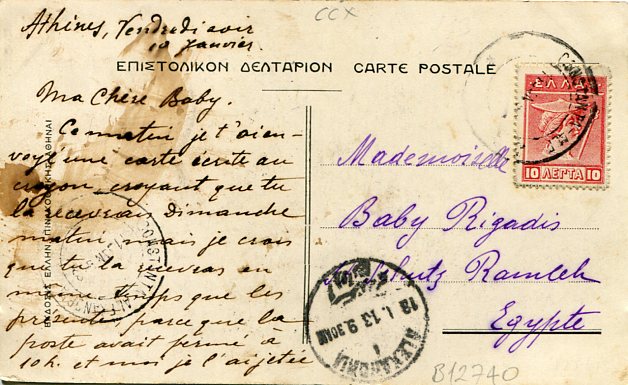 CCX
Athènes, Vendredi soir
10 Janvier
ΕΠΙΣΤΟΛΙΚΟΝ ΔΕΛΤΑΡΙΟΝ CARTE POSTALE
Ma Chère Baby.
Ce matin je t'ai en-
voyé une carte écrite au
crayon croyant que tu
la recevrais Dimanche
matin mais je crois
que tu la recevras en
même temps que les
présente parce que la
poste avait fermé à
10h. et moi je l'ai jetée
Mademoiselle
Baby Rigadis
Schutz Ramleh
Egypte
ΕΛΛΑΣ
10 ΛΕΠΤΑ 10
CONSTANT
18.I.13.9.30AM
ALEXANDRIA
B12740